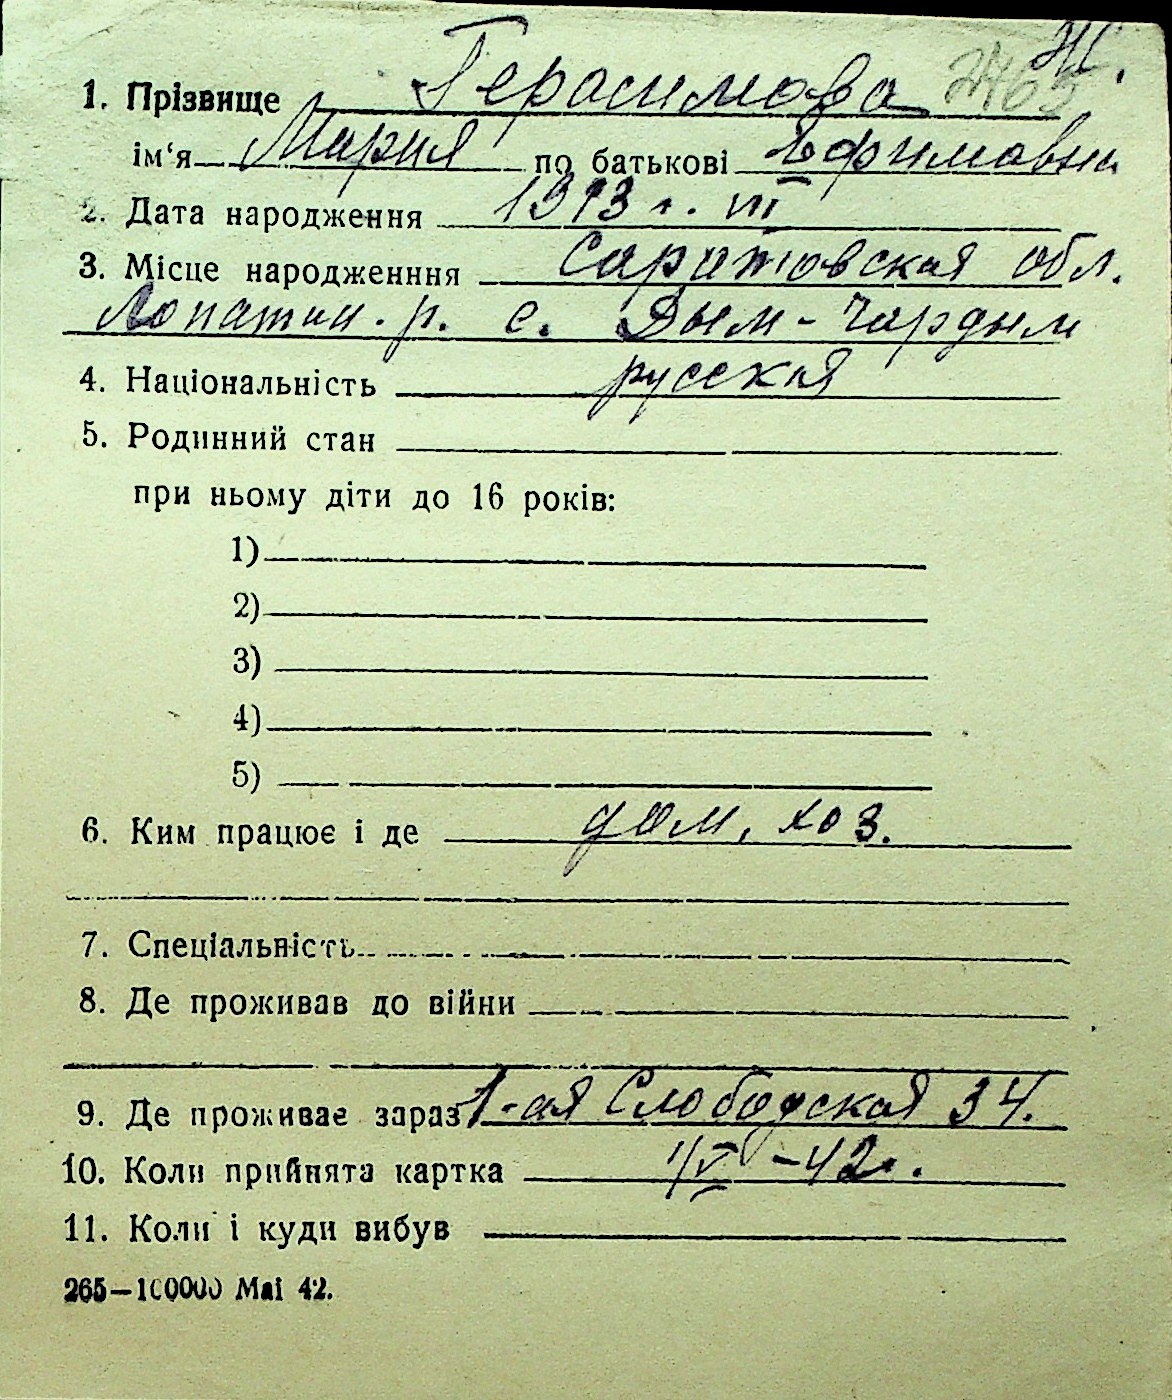 Ж.
2465
1. Прізвище Герасимова
ім‘я Мария по батькові Ефимовна
2. Дата народження 1913 г. III
3. Місце народженння Саратовская обл.
Лопатин. р. с. Дым-Чардым
4. Національність русская
5. Родинний стан
при ньому діти до 16 років:
1)
2)
3)
4)
5)
6. Ким працює і де дом. хоз.
7. Спеціальність
8. Де проживав до війни
9. Де проживає зараз 1-ая Слободская 34.
10. Коли прийнята картка -42г.
11. Коли і куди вибув
265—100000 Маі 42.